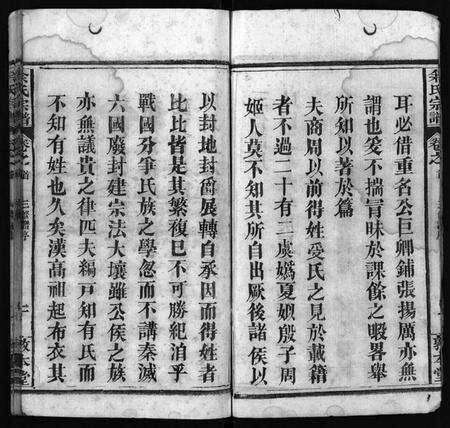 耳必借重名公巨卿鋪張揚厲亦無
謂也爰不揣冒昧於課餘之暇畧舉
所知以著於篇
夫商周以前得姓受氏之見於載籍
者不過二十有二虞媯夏姒殷子周
姬人莫不知其所自出厥後諸侯以
以封地封爵展轉自承因而得姓者
比比皆是其繁複已不可勝紀洎乎
戰國分爭氏族之學忽而不講秦滅
六國廢封建宗法大壞雖公侯之族
亦無議貴之律匹夫編戸知有氏而
不知有姓也久矣漢高祖起布衣其
余氏宗譜
卷之首
敦本堂